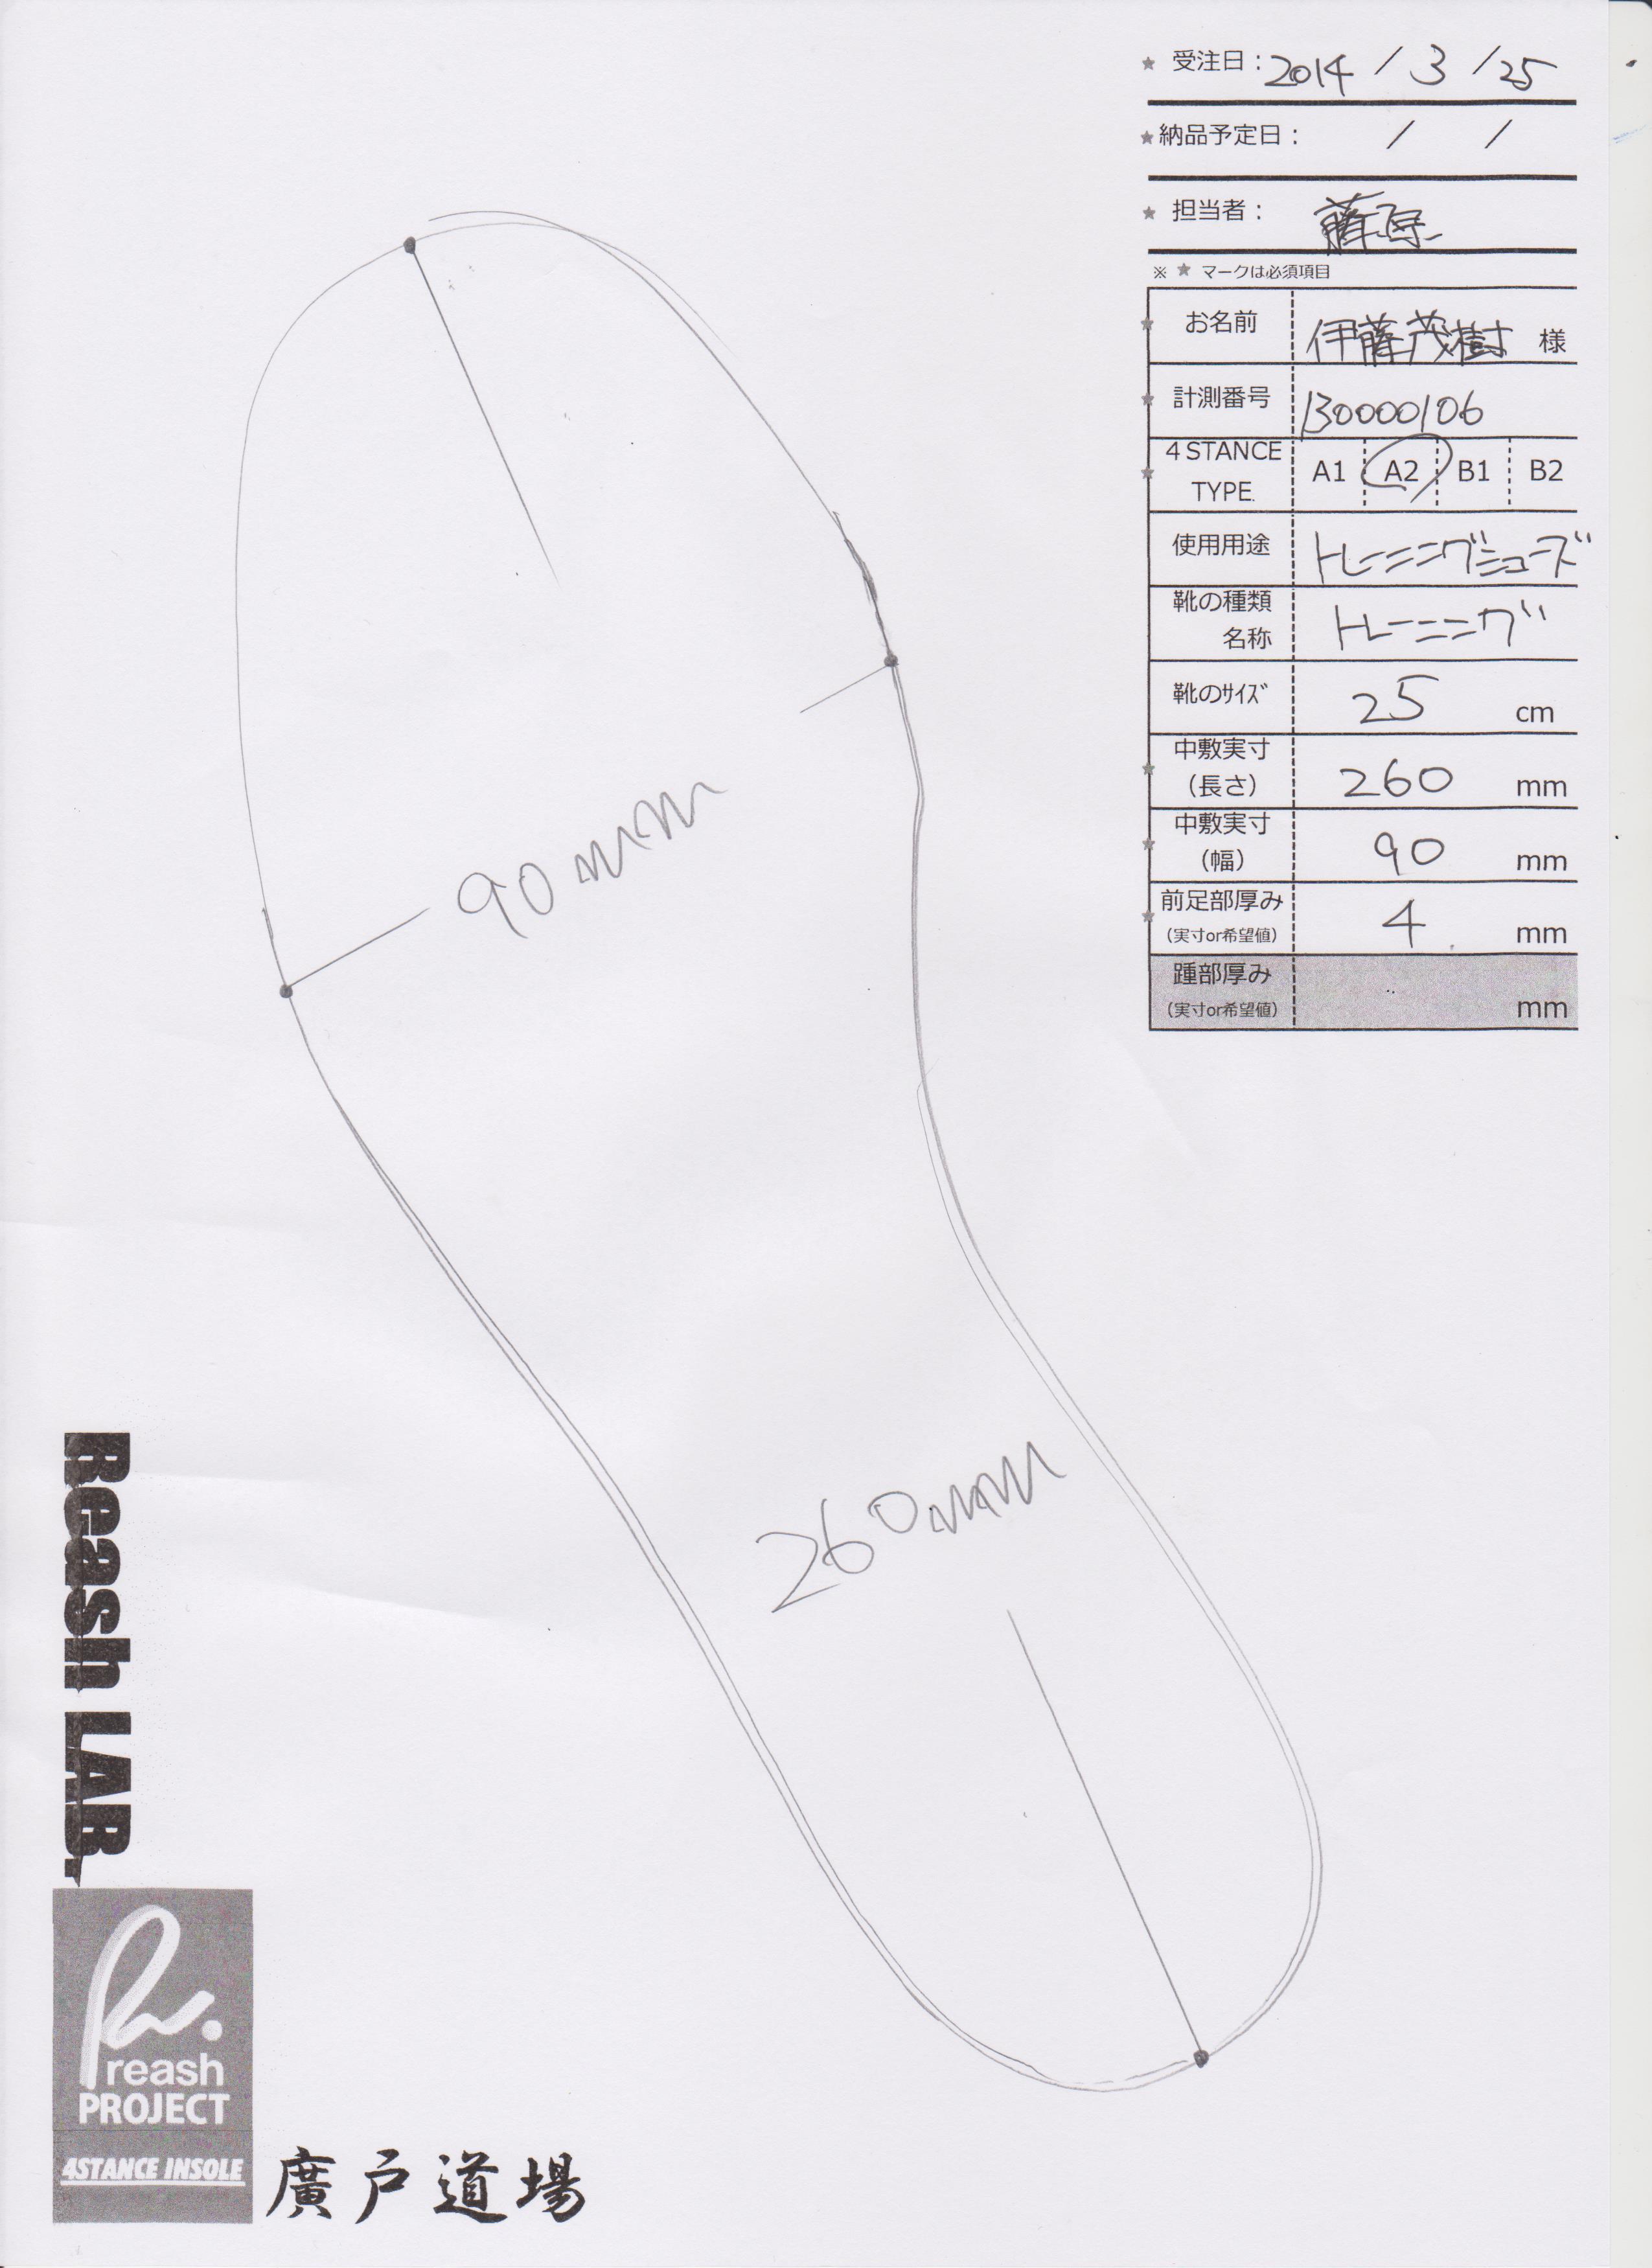 ★ 受注日：2014 / 3 / 25
★ 納品予定日： / /
★ 担当者： 藤原
※ ★ マークは必須項目
★ お名前 伊藤茂樹 様
★ 計測番号 130000106
★ 4 STANCE TYPE. A1 A2 B1 B2
使用用途 トレーニングシューズ
靴の種類
名称 トレーニング
靴のサイズ 25 cm
★ 中敷実寸
（長さ） 260 mm
★ 中敷実寸
（幅） 90 mm
★ 前足部厚み
（実寸or希望値） 4 mm
踵部厚み
（実寸or希望値） mm
90mm
260mm
Reash LAB.
R.
reash
PROJECT
4STANCE INSOLE
廣戸道場